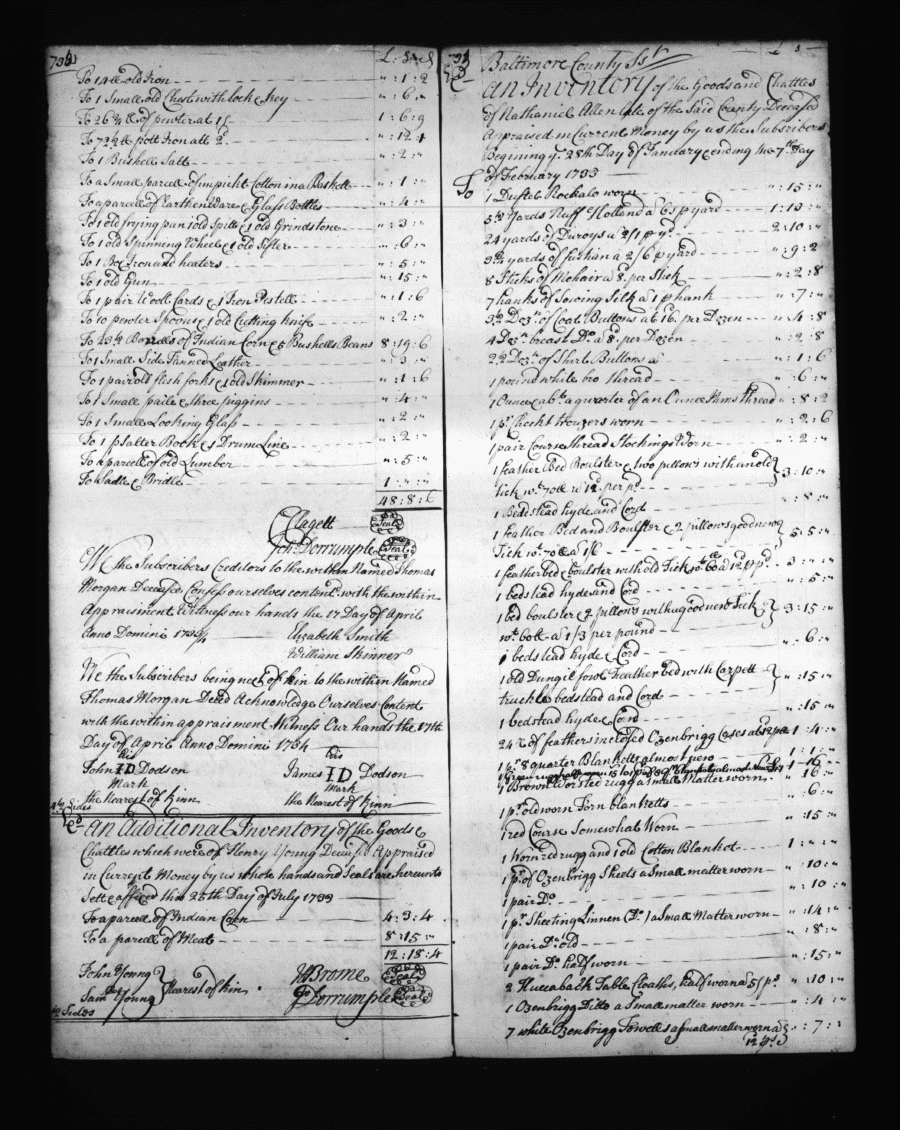 L : S : d
To 14 ll old Iron " : 1 : 2
To 1 Small old Chest with lock & key " : 6 : "
To 26¾ ll of pewter at 1/ 1 : 6 : 9
To 72½ ll pott Iron att 2d " : 12 : 1
To 1 Bushell Salt " : 2 : "
To a Small parcell of unpickt Cotton in a Baskett " : 1 : "
To a parcell of Earthenware & Glass Bottles " : 4 : "
To 1 old frying pan 1 old Spitt & 1 old Grindstone " : 3 : "
To 1 old Spinning Wheel & 1 old Sifter " : 6 : "
To 1 Box Iron and heaters " : 5 : "
To 1 old Gun " : 15 : "
To 1 pair Wooll Cards & 1 Iron Pestell " : 1 : 6
To 10 pewter Spoons & 1 old Cutting knife " : 2 : "
To 23½ Barrells of Indian Corn & 5 Bushells Beans 8 : 19 : 6
To 1 Small Side Tanned Leather " : 3 : "
To 1 pair old flesh forks & 1 old Skimmer " : 1 : 6
To 1 Small paile & three piggins " : 4 : "
To 1 Small Looking Glass " : 2 : "
To 1 pSalter Book & 1 Drum Line " : 2 : "
To a parcell of old Lumber " : 5 : "
To Sadle & Bridle 1 : " : "
48 : 8 : 6
Clagett Seal
Jon. Dorrumple Seal
We the Subscribers Creditors to the within Named Thomas
Morgan Deceased Confess ourselves content with the within
Appraisment Witness our hands the 17 Day of April
Anno Domini 1733/4 Elizabeth Smith
William Skinner
We the Subscribers being next of kin to the within Named
Thomas Morgan Deced Acknowledge Ourselves Content
with the within appraisment Witness Our hands the 17th
Day of April Anno Domini 1734
his his
John ID Dodson James ID Dodson
Mark Mark
the Nearest of Kinn the Nearest of Kinn
4 Sides
Ed An Additional Inventory of the Goods &
Chattles which were of Henry Young Deceasd Appraised
in Current Money by us whose hands and Seals are hereunto
Sett & affixed this 25th Day of July 1733
To a parcell of Indian Corn 4 : 3 : 4
To a parcell of Meat 8 : 15 : "
12 : 18 : 4
John Young W Brome Seal
Nearest of kin
Saml Young Jo Dorrumple Seal
Sides
L s
Baltimore County Ss
An Inventory of the Goods and Chattles
of Nathaniel Allen late of the Said County Deceased
Appraised in Current Money by us the Subscribers
Begining ye 28th Day of January & ending the 7th Day
of February 1733
To 1 Duffels Rockalo worn " : 15 : "
5½ Yards Nuff Holland a 6s p yard 1 : 13 : "
24 yards of Duroys a 2/1 p yd 2 : 10 : "
yards of fustian a 2/6 p yard " : 9 : 2
8 Sticks of Mohair a 8d per Stick " : 2 : 8
7 hanks of Sowing Silk a 1 p hank " : 7 : "
3½ Dozn of Coat Buttons at 16 per Dozen " : 4 : 8
4 Dozn breast Do a 8d per Dozen " : 2 : 8
Dozn of Shirt Buttons a " : 1 : 6
1 pound white bro thread " : 6 : "
1 Ounce & abt a quarter of an Ounce thread " : 8 : 2
1 pr Checkt Trouzers worn " : 2 : 6
1 pair Course thread Stockings Worn " : 2 : "
1 feather Bed Boulster & two pillows with an old
tick wt 70 ll a 12d per pd 3 : 10 : "
1 Bedstead hyde and Cord " : 8 : "
1 Feather Bed and Boulster & 2 pillows good new
Tick wt 70 ll a 1/6 5 : 5 : "
1 feather bed & boulster with old Tick wt 60 ll a 12d p pd 3 : " : "
1 bedstead hyde and Cord " : 5 : "
1 bed boulster & 2 pillows with good new Tick
wt 60 ll a 1/3 per pound 3 : 15 : "
1 bedstead hyde & Cord " : 6 : "
1 old Dungil fowl Feather bed with Carpett
truckle bedstead and Cord " : 15 : "
1 bedstead hyde & Cord " : 15 : "
24 ll of feathers inclosed Ozenbrigg Cases at 12 pd 1 : 4 : "
1 pr 8 quarter Blanketts almost new 1 : 1 : "
1 - 16 -
1 Brown Worsted rugg a Small Matter worn " : 16 : "
1 pr old worn Torn blanketts " : 6 : "
1 red Course Somewhat Worn " : 15 : "
1 Worn red rugg and 1 old Cotton Blanket 1 : " : "
1 pr of Ozenbrigg Sheets a Small matter worn " : 10 : "
1 pair Do " : 10 : "
1 pr Sheeting Linnen (Do) a Small Matter worn " : 14 : "
1 pair Do old " : 8 : "
1 pair Do half worn " : 15 : "
2 Huccaback Table Cloaths, half worn a 5/ p " : 10 : "
1 Ozenbrigg Ditto a Small matter worn " : 4 : "
7 white Ozenbrigg Towells a small matter worn a " : 7 : "
12d